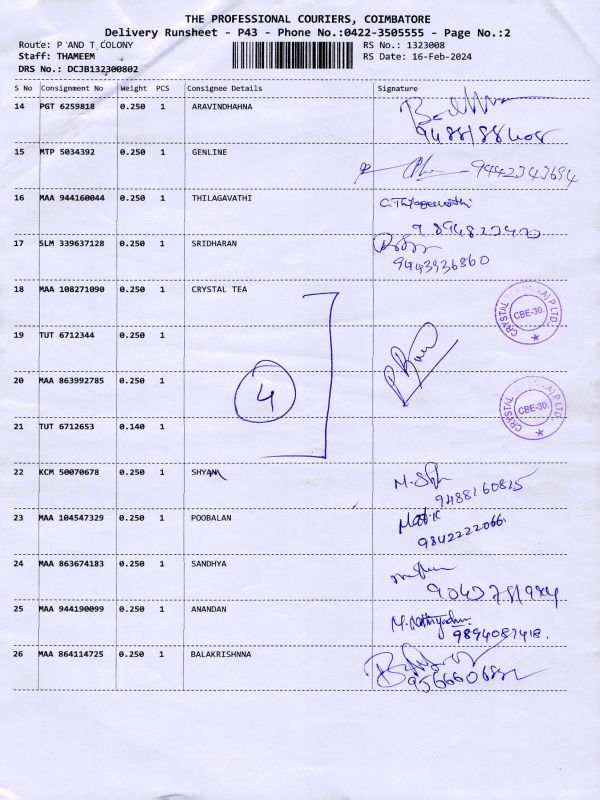 THE PROFESSIONAL COURIERS, COIMBATORE
Delivery Runsheet - P43 - Phone No.:0422-3505555 - Page No.:2
Route: P AND T COLONY
Staff: THAMEEM
DRS No.: DCJB132300802
RS No.: 1323008
RS Date: 16-Feb-2024
S No Consignment No Weight PCS Consignee Details Signature
14 PGT 6259818 0.250 1 ARAVINDHAHNA
15 MTP 5034392 0.250 1 GENLINE
9442343694
16 MAA 944160044 0.250 1 THILAGAVATHI
C. Thilagavathi
17 SLM 339637128 0.250 1 SRIDHARAN
9443936860
18 MAA 108271090 0.250 1 CRYSTAL TEA
CRYSTAL P LTD. CBE-30.
19 TUT 6712344 0.250 1
20 MAA 863992785 0.250 1
4
CRYSTAL P LTD. CBE-30.
21 TUT 6712653 0.140 1
22 KCM 50070678 0.250 1 SHYAM
9488160825
23 MAA 104547329 0.250 1 POOBALAN
9842222066
24 MAA 863674183 0.250 1 SANDHYA
25 MAA 944190099 0.250 1 ANANDAN
9894087418.
26 MAA 864114725 0.250 1 BALAKRISHNNA